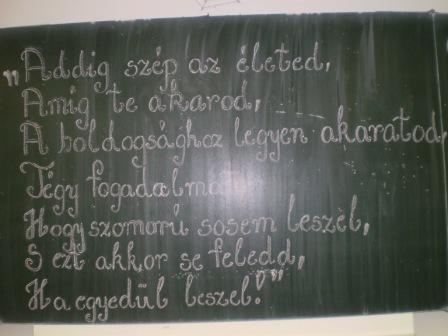 „Addig szép az életed,
Amíg te akarod,
A boldogsághoz legyen akaratod,
Tégy fogadalmat,
Hogy szomorú sosem leszel,
S ezt akkor se feledd,
Ha egyedül leszel!”